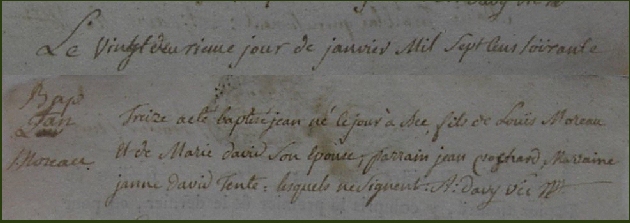 Le Vingtdeuxieme jour de janvier Mil Sept Cens soixante
Bap
Jan
Moreau.
Treize a eté baptisé jean né le jour d'hier, fils de Louis Moreau
et de Marie david son Epouse, parrain jean cochard, Maraine
janne david Tente: lesquels ne signent. A: davy vic